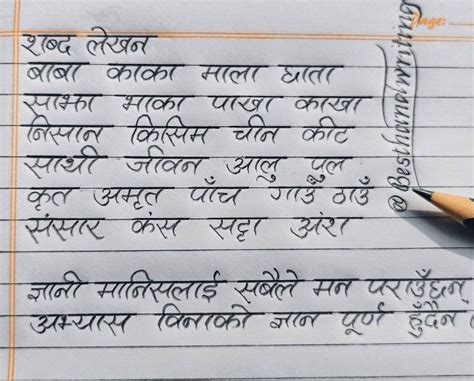 Page:
शब्द लेखन
बाबा काका माला घाता
साझा भाका पाखा काखा
निसान किसिम चीन कीट
साथी जीवन आलु पुल
कृत अमृत पाँच गाउँ ठाउँ
संसार कंस सट्टा अंश
ज्ञानी मानिसलाई सबैले मन पराउँछन्
अभ्यास विनाको ज्ञान पूर्ण हुँदैन।
@Besthandwriting